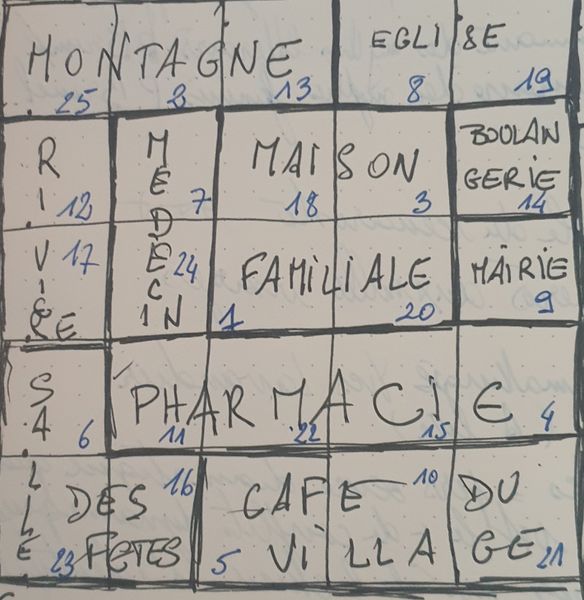 MONTAGNE
25 2 13
EGLISE
8 19
RIVIÈRE
12
17
MEDECIN
7
24
MAISON
18 3
FAMILIALE
1 20
BOULAN
GERIE
14
MAIRIE
9
PHARMACIE
11 22 15 4
SALLE
6
DES 16
23 FETES
CAFE 10 DU
5 VILLAGE 21